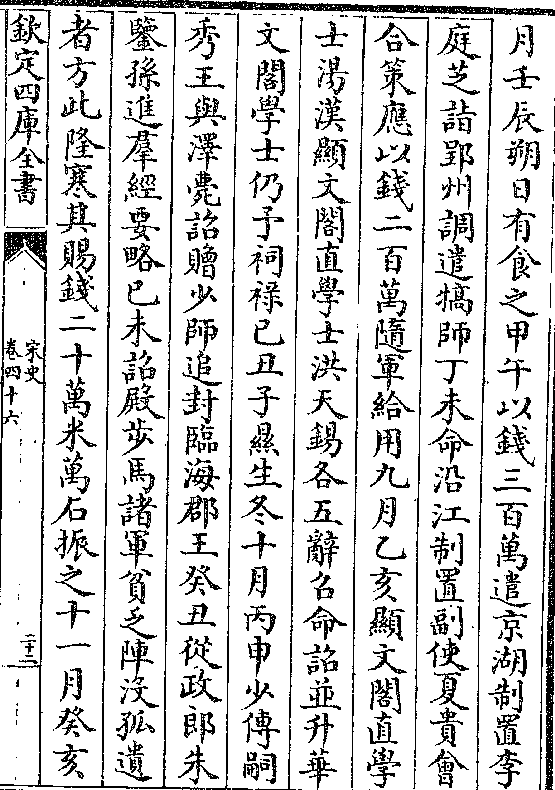 月壬辰朔日有食之甲午以錢三百萬遣京湖制置李
庭芝詣郢州調遣犒師丁未命沿江制置副使夏貴會
合策應以錢二百萬隨軍給用九月乙亥顯文閣直學
士湯漢顯文閣直學士洪天錫各五辭召命詔並升華
文閣學士仍予祠祿己丑子㬎生冬十月丙申少傅嗣
秀王與澤薨詔贈少師追封臨海郡王癸丑從政郎朱
鑒孫進羣經要略己未詔殿步馬諸軍貧乏陣沒孤遺
者方此隆寒其賜錢二十萬米萬石振之十一月癸亥
欽定四庫全書
宋史
卷四十六
二十二